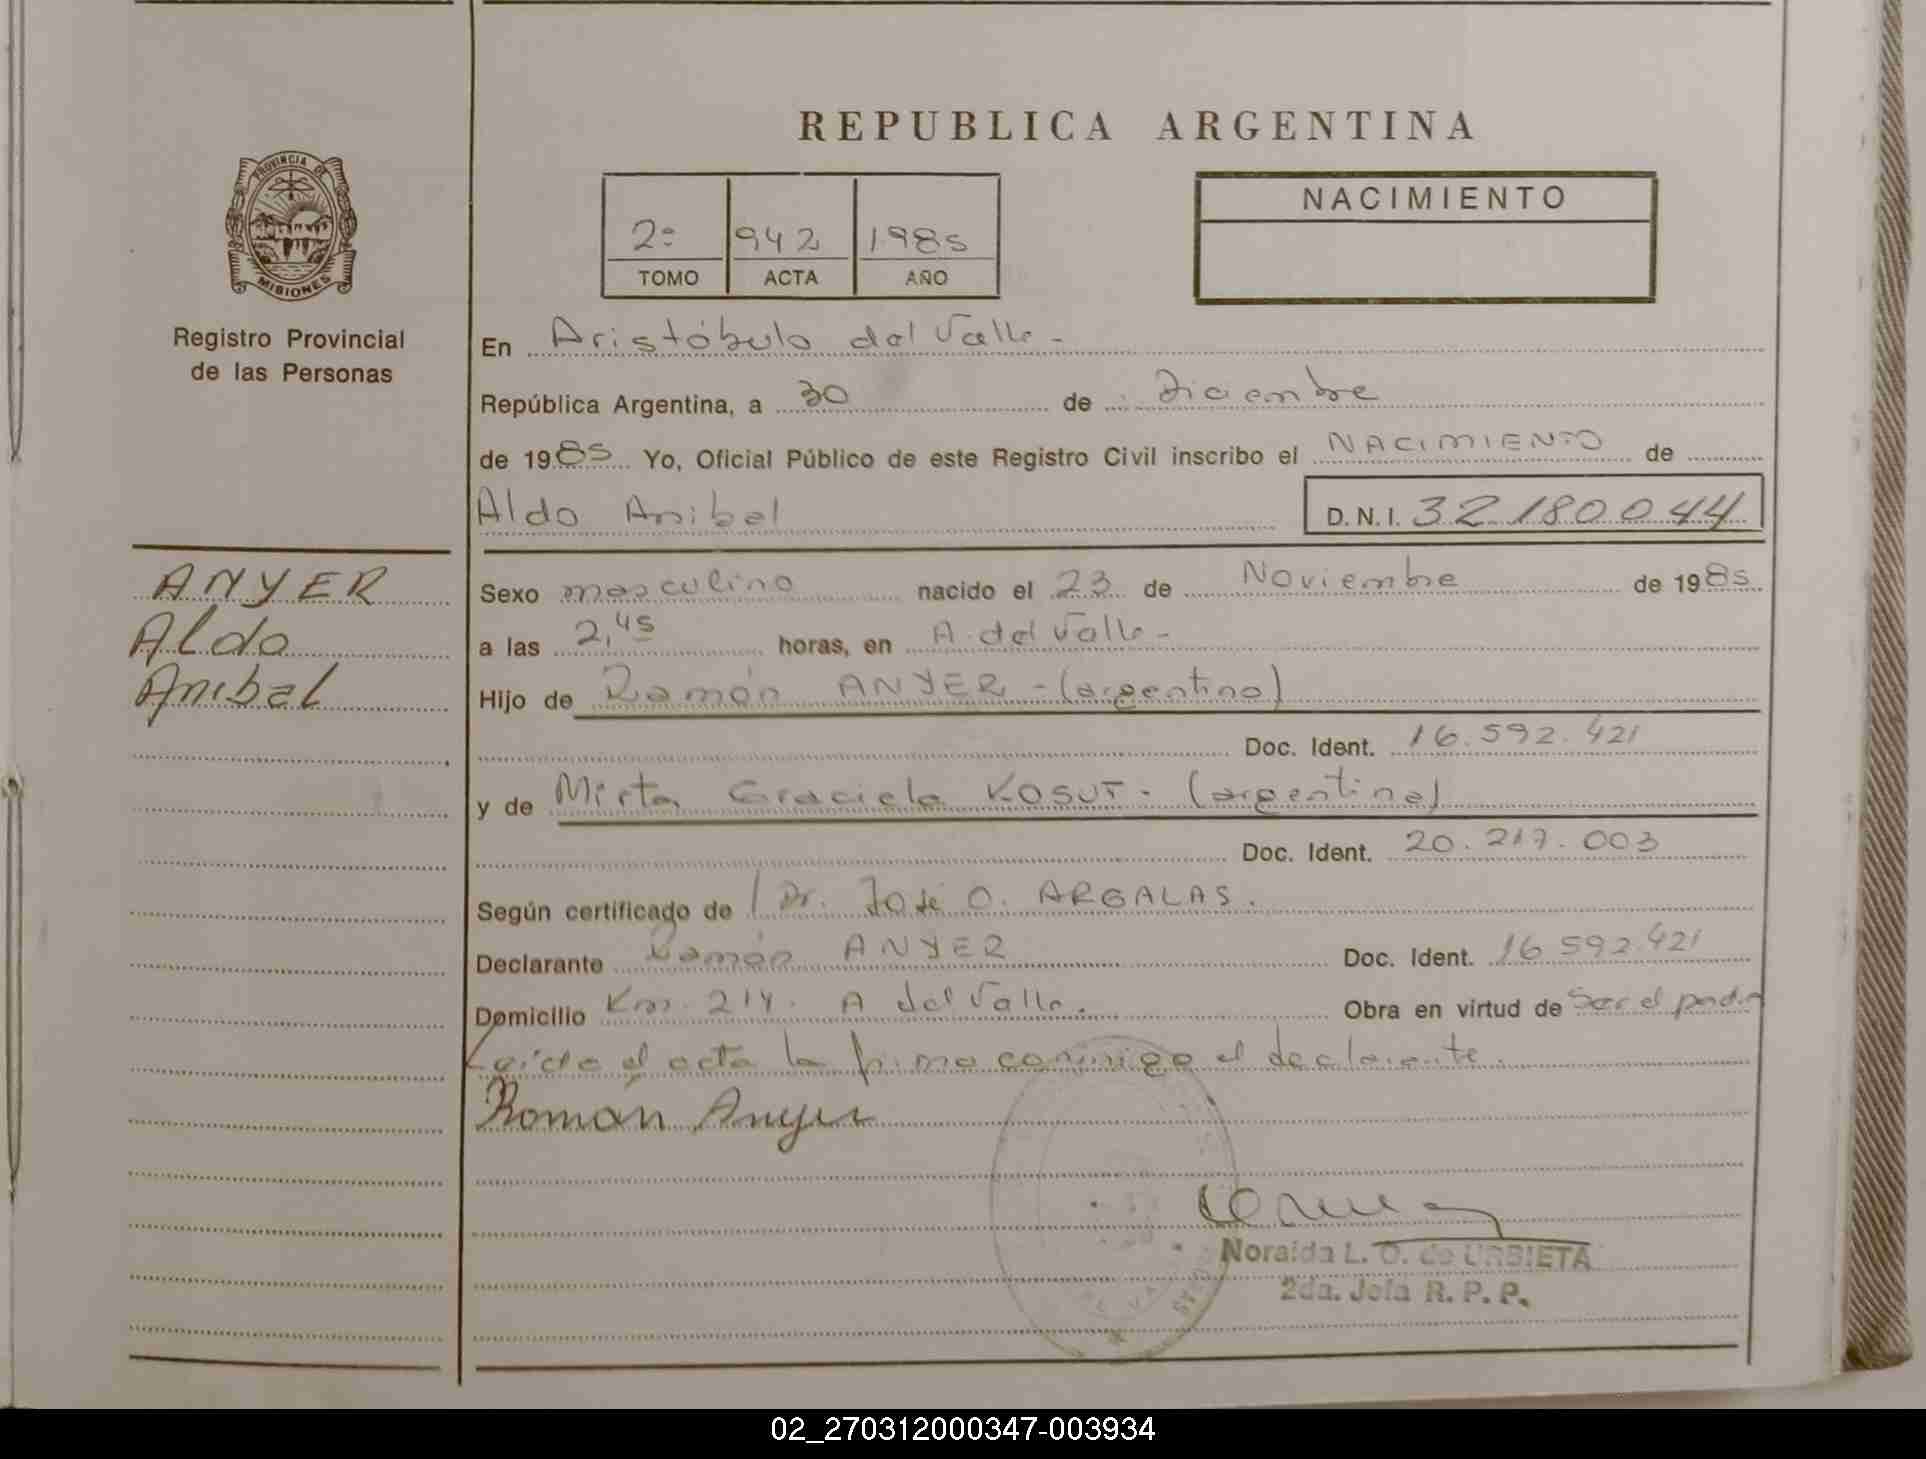 REPUBLICA ARGENTINA
PROVINCIA DE
MISIONES
Registro Provincial
de las Personas
2º 942 1985
TOMO ACTA AÑO
NACIMIENTO
En Aristóbulo del Valle -
República Argentina, a 30 de Diciembre
de 1985 Yo, Oficial Público de este Registro Civil inscribo el NACIMIENTO de
Aldo Anibal D.N.I. 32.180.044
ANYER
Aldo
Anibal
Sexo masculino nacido el 23 de Noviembre de 1985
a las 2,45 horas, en A. del Valle -
Hijo de Ramón ANYER - (argentino)
Doc. Ident. 16.592.421
y de Mirta Graciela KOSUT - (argentina)
Doc. Ident. 20.217.003
Según certificado de Dr. José O. ARGALAS.
Declarante Ramón ANYER Doc. Ident. 16.592.421
Domicilio Km. 214. A del Valle. Obra en virtud de Ser el padre
Leída el acta la firma conmigo el declarante.
Román Anyer
Noraida L. O. de URBIETA
2da. Jefa R. P. P.
02_270312000347-003934